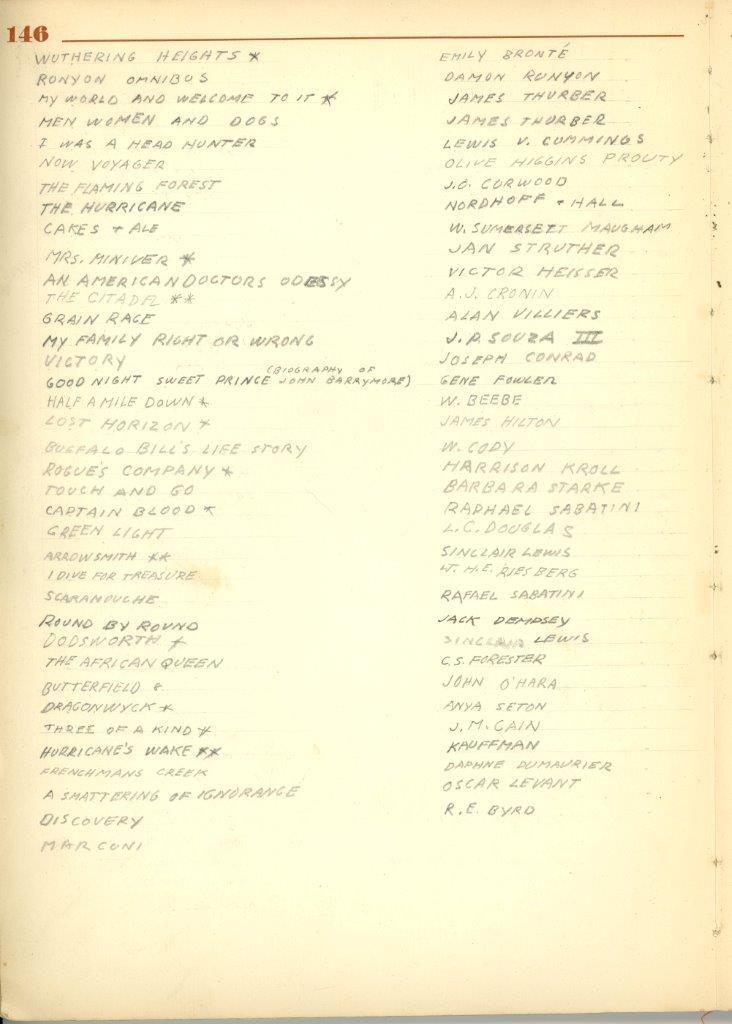 146
WUTHERING HEIGHTS * EMILY BRONTÉ
RUNYON OMNIBUS DAMON RUNYON
MY WORLD AND WELCOME TO IT * JAMES THURBER
MEN WOMEN AND DOGS JAMES THURBER
I WAS A HEAD HUNTER LEWIS V. CUMMINGS
NOW VOYAGER OLIVE HIGGINS PROUTY
THE FLAMING FOREST J.O. CURWOOD
THE HURRICANE NORDHOFF + HALL
CAKES + ALE W. SUMERSETT MAUGHAM
MRS. MINIVER * JAN STRUTHER
AN AMERICAN DOCTORS ODESSY VICTOR HEISSER
THE CITADEL ** A.J. CRONIN
GRAIN RACE ALAN VILLIERS
MY FAMILY RIGHT OR WRONG J.P. SOUZA III
VICTORY JOSEPH CONRAD
GOOD NIGHT SWEET PRINCE (BIOGRAPHY OF JOHN BARRYMORE) GENE FOWLER
HALF A MILE DOWN * W. BEEBE
LOST HORIZON * JAMES HILTON
BUFFALO BILL'S LIFE STORY W. CODY
ROGUE'S COMPANY * HARRISON KROLL
TOUCH AND GO BARBARA STARKE
CAPTAIN BLOOD * RAPHAEL SABATINI
GREEN LIGHT L.C. DOUGLAS
ARROWSMITH ** SINCLAIR LEWIS
I DIVE FOR TREASURE LT. H.E. RIESBERG
SCARAMOUCHE RAFAEL SABATINI
ROUND BY ROUND JACK DEMPSEY
DODSWORTH * SINCLAIR LEWIS
THE AFRICAN QUEEN C.S. FORESTER
BUTTERFIELD 8 JOHN O'HARA
DRAGONWYCK * ANYA SETON
THREE OF A KIND * J.M. CAIN
HURRICANE'S WAKE ** KAUFFMAN
FRENCHMANS CREEK DAPHNE DUMAURIER
A SMATTERING OF IGNORANCE OSCAR LEVANT
DISCOVERY R.E. BYRD
MARCONI